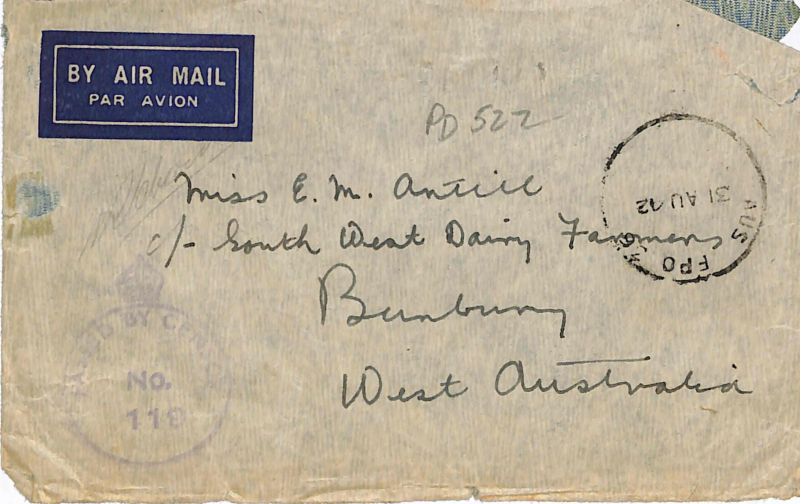 BY AIR MAIL
PAR AVION
PD 522
Miss E. M. Antill
c/- South West Dairy Farmers
Bunbury
West Australia
AUS FPO
31 AU 42
PASSED BY CENSOR
No.
119